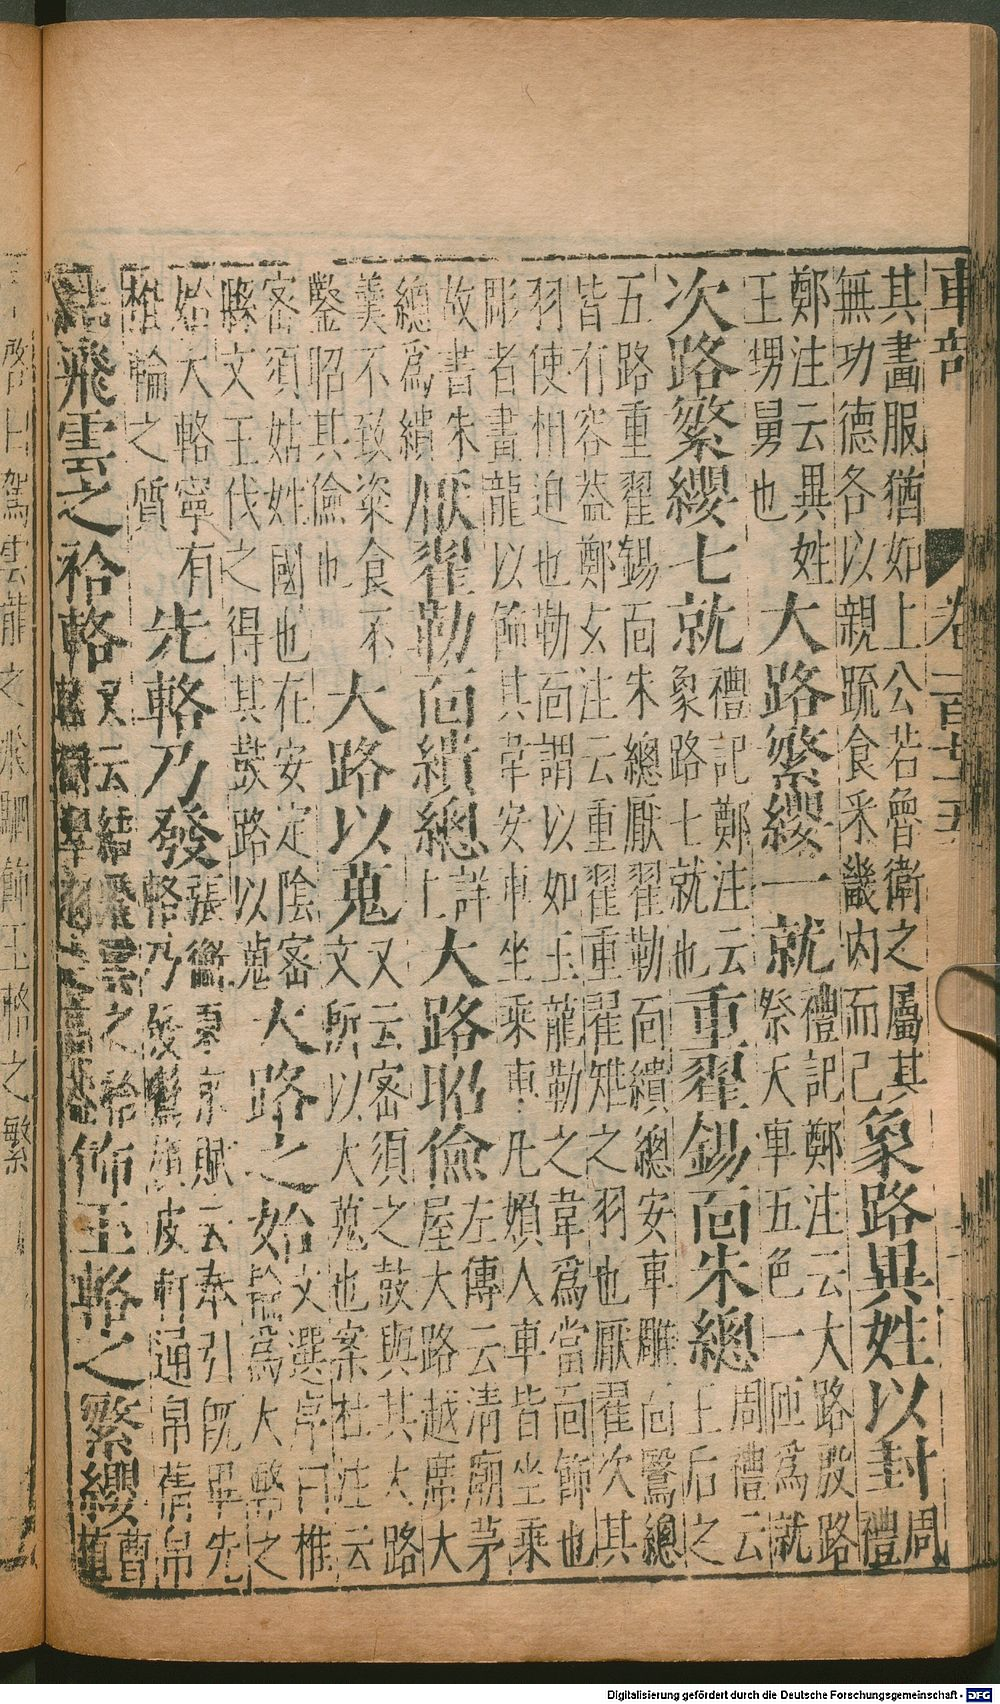 車部 卷一百廿五
其畫服猶如上公若魯衛之屬其
無功德各以親疏食采畿内而已
象路異姓以封
周
禮
鄭注云異姓
王甥舅也
大路繁纓一就
禮記鄭注云大路殷路
祭天車五色一匝爲就
次路繁纓七就
禮記鄭注云
象路七就也
重翟錫面朱總
周禮云
王后之
五路重翟錫面朱總厭翟勒面繢總安車雕面鷖總
皆有容蓋鄭玄注云重翟重翟雉之羽也厭翟次其
羽使相迫也勒面謂以如玉龍勒之韋爲當面飾也
彫者畫龍以飾其韋安車坐乘車凡婦人車皆坐乘
故書朱
總爲繢
厭翟勒面繢總
詳
上
大路昭儉
左傳云清廟茅
屋大路越席大
羹不致粢食不
鑿昭其儉也
大路以蒐
又云密須之鼓與其大路
文所以大蒐也案杜注云
密須姞姓國也在安定陰密
縣文王伐之得其鼓路以蒐
大路之始
文選序曰椎
輪爲大輅之
始大輅寧有
椎輪之質
先輅乃發
張衡東京賦云奉引既畢先
輅乃發鸞旗皮軒通帛綪帛
飛雲之袷輅
又云結飛雲之袷
飾玉輅之繁纓
曹
植
Digitalisierung gefördert durch die Deutsche Forschungsgemeinschaft - DFG